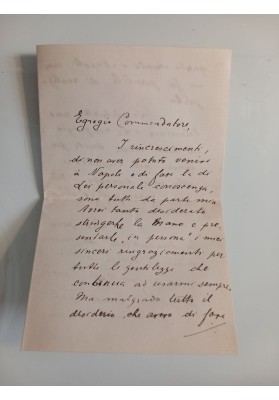 Egregio Commendatore,
I rincrescimenti,
di non aver potuto venire
a Napoli e di fare la di
Lei personale conoscenza,
sono tutti da parte mia
Avrei tanto desiderato
stringerle la mano e pre=
sentarle „in persona" i miei
sinceri ringraziamenti per
tutte le gentilezze che
continua ad usarmi sempre.
Ma malgrado tutto il
desiderio, che avevo di fare